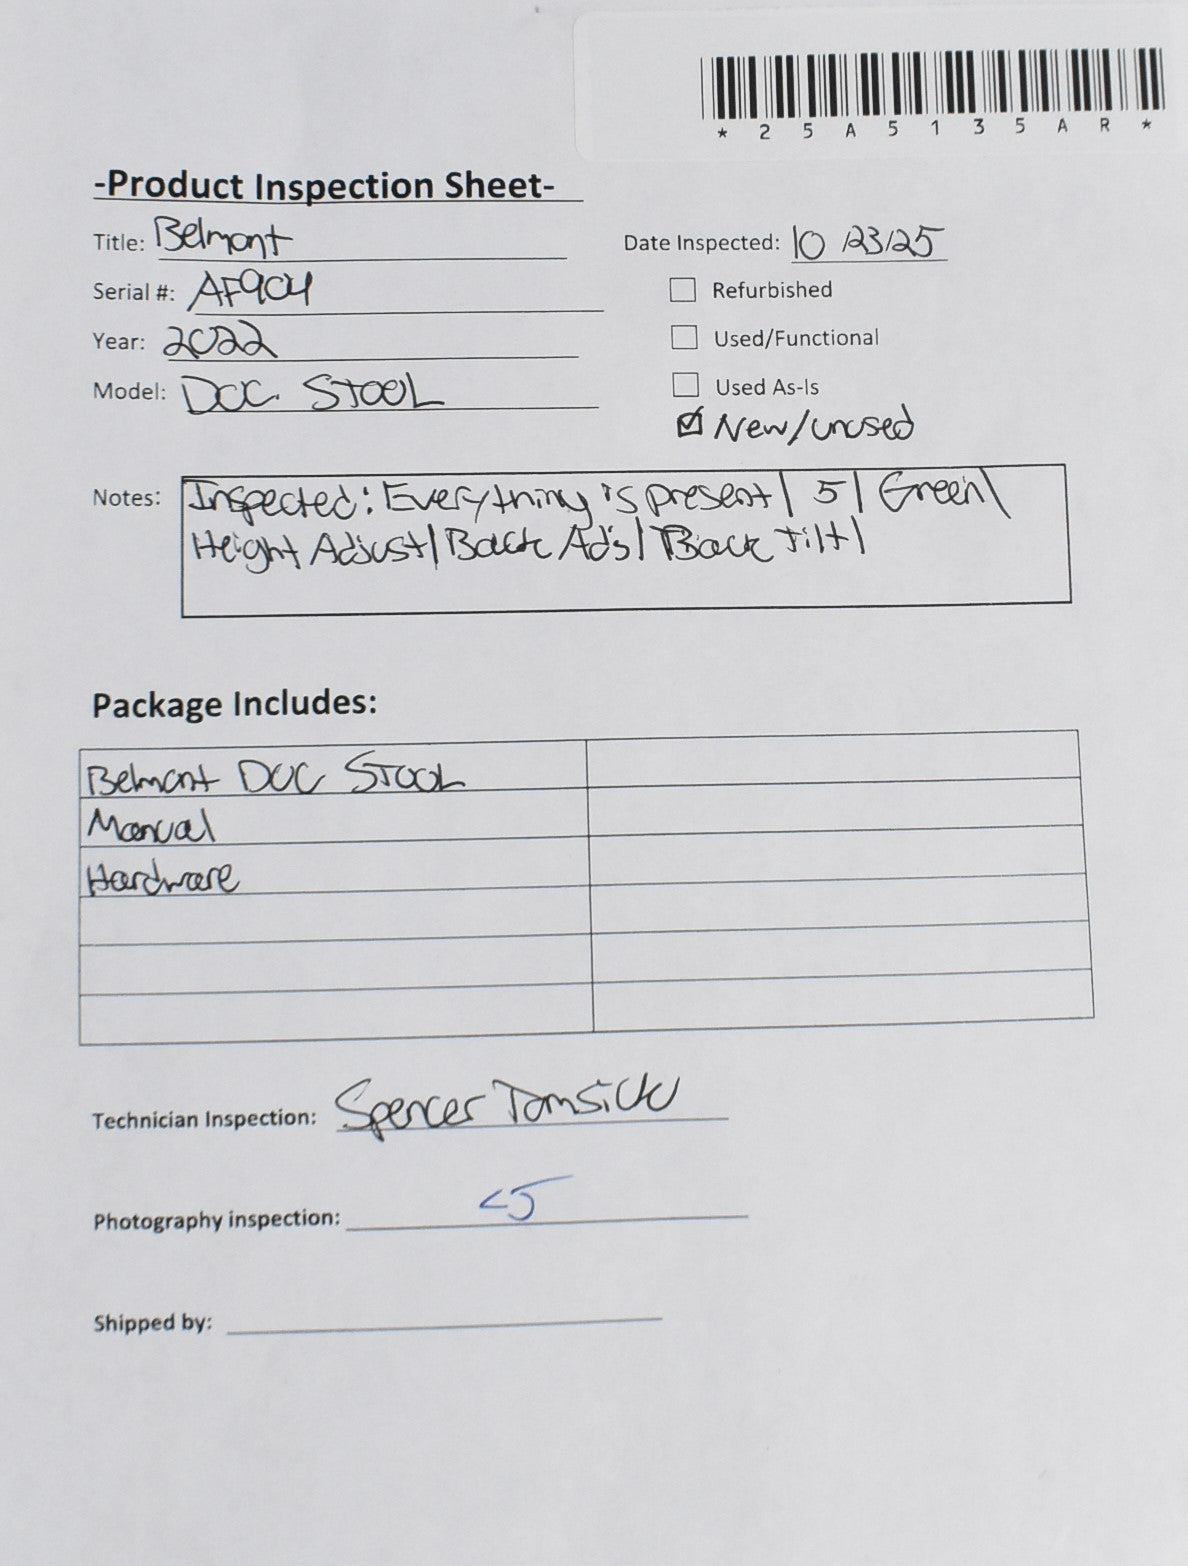 *25A5135AR*
-Product Inspection Sheet-
Title: Belmont
Date Inspected: 10/23/25
Serial #: AF904
Refurbished
Year: 2022
Used/Functional
Model: DOC STOOL
Used As-Is
New/unused
Notes: Inspected: Everything is present | 5 | Green |
Height Adjust | Back Adj | Back Tilt |
Package Includes:
Belmont DOC STOOL
Manual
Hardware
Technician Inspection: Spencer
Photography inspection:
Shipped by: